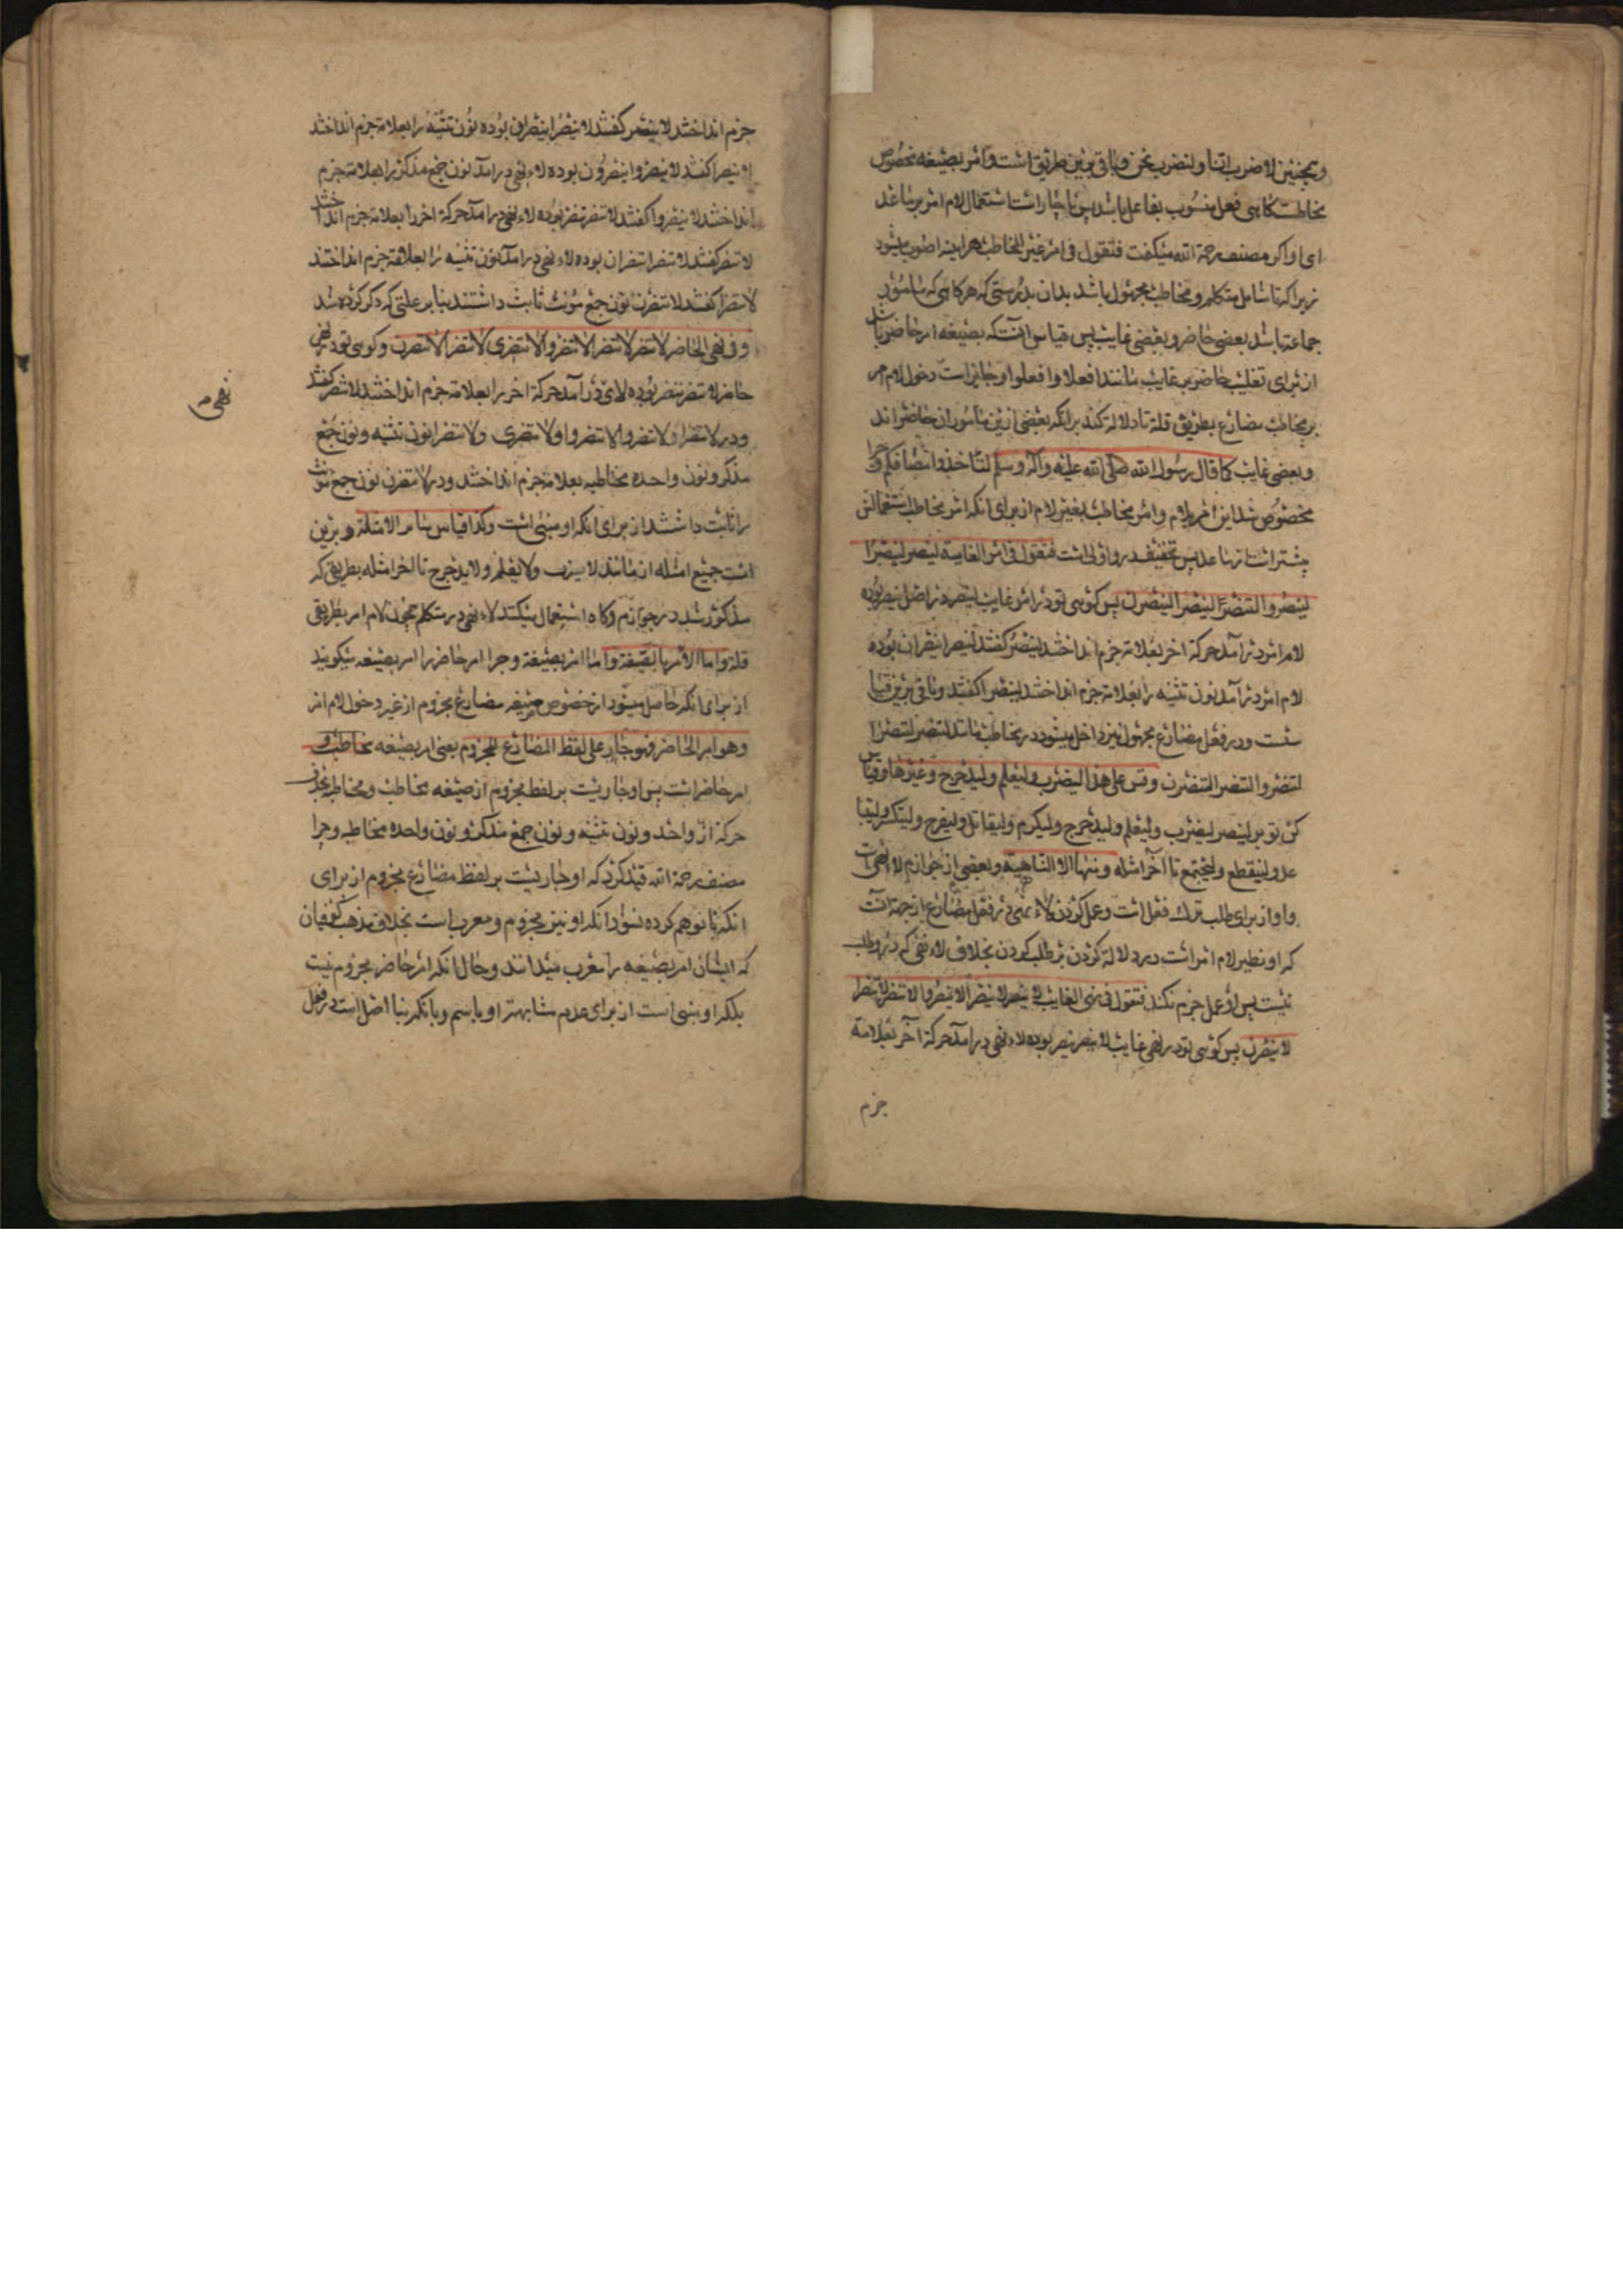 وهمچنین لاضرب انا ولنضرب نحن وباقی برین طریق است وامر بصیغه مخصوص
مخاطبست کاهی فعل منسوب بفاعل باشد پس ناچار است استعمال لام امر بر ناعد
ای واکر مصنف رحمة الله میکفت فتقول فی امر غیر المخاطب هراینه اصوب میبود
زیرا که تا شامل متکلم و مخاطب مجهول باشد بدان بدرستی که هرکاهی که مامور
جماعة باشد بعضی حاضر و بعضی غایب پس قیاس آنست که بصیغه امر حاضر باشد
از برای تغلیب حاضر بر غایب مانند افعلا وافعلوا وجایز است دخول لام امر
بر مخاطب مضارع بطریق قلة تا دلالة کند برانکه بعضی ازین ماموران حاضر اند
وبعضی غایب کما قال رسول الله صلی الله علیه وآله وسلم لتاخذوا مصافکم وچرا
مخصوص شد این امر بلام وامر مخاطب بغیر لام از برای انکه امر مخاطب استعمالش
بیشتر است پس تخفیف درو اولی است فتقول فی امر الغایب لینصر لینصرا
لینصروا لتنصر لتنصرا لینصرن پس کوئی تو در امر غایب لینصر در اصل ینصر بوده
لام امر درآمد حرکة اخر بعلامة جزم انداختند لینصر کفتند لینصرا ینصران بوده
لام امر درآمد نون تثنیه را بعلامة جزم انداختند لینصرا کفتند وباقی برین قیا
سست ودر فعل مضارع مجهول نیز داخل میشود در مخاطب مانند لتنصر لتنصرا
لتنصروا لتنصری لتنصرا لتنصرن وقس علی هذا لیضرب ولیعلم ولیدحرج وغیرها وقیاس
کن تو بر لینصر لیضرب ولیعلم ولیدحرج ولیکرم ولیقاتل ولیفرح ولیتکسر ولیتبا
عد ولینقطع ولیجتمع تا آخر امثله ومنها لا الناهیة وبعضی از جوازم لاء نهی است
واو از برای طلب ترک فعل است وعمل کردن لاء نهی در فعل مضارع از جهة آنست
که او نظیر لام امر است در دلالة کردن بر طلب کردن بخلاف لاء نفی که درو طلب
نیست پس او عمل جزم نکند فتقول فی نهی الغایب لا ینصر لا ینصرا لا ینصروا لا تنصر لا تنصرا
لا ینصرن پس کوئی تو در نهی غایب لا ینصر ینصر بوده لاء نهی درآمد حرکة آخر بعلامة
جزم
جزم انداختند لا ینصر کفتند لا ینصرا ینصران بوده نون تثنیه را بعلامة جزم انداختند
لا ینصرا کفتند لا ینصروا ینصرون بوده لاء نهی درآمد نون جمع مذکر را بعلامة جزم
انداختند لا ینصروا کفتند لا تنصر تنصر بوده لاء نهی درآمد حرکة اخر را بعلامة جزم انداختند
لا تنصر کفتند لا تنصرا تنصران بوده لاء نهی درآمد نون تثنیه را بعلامة جزم انداختند
لا تنصرا کفتند لا ینصرن نون جمع مونث ثابت داشتند بنابر علتی که ذکر کرده شد
وفی نهی الحاضر لا تنصر لا تنصرا لا تنصروا لا تنصری لا تنصرا لا تنصرن وکوئی تو در نهی
حاضر لا تنصر تنصر بوده لای درآمد حرکة اخر را بعلامة جزم انداختند لا تنصر کفتند
ودر لا تنصرا ولا تنصروا ولا تنصری ولا تنصرا نون تثنیه ونون جمع
نهی م
مذکر ونون واحده مخاطبه بعلامة جزم انداختند ودر لا تنصرن نون جمع مونث
را ثابت داشتند از برای انکه او مبنی است وکذا قیاس سایر الامثلة وبرین
است جمیع امثله از مانند لا یضرب ولا یعلم ولا یدحرج تا اخر امثله بطریقی که
مذکور شد در جوازم وکاه استعمال میکنند لاء نهی در متکلم همچون لام امر بطریقی
قلة واما الامر بالصیغة واما امر بصیغة وچرا امر حاضر را امر بصیغه میکویند
از برای انکه حاصل میشود از خصوص صیغه مضارع مجزوم از غیر دخول لام امر
وهو امر الحاضر فهو جار علی لفظ المضارع المجزوم یعنی امر بصیغه مخاطب و
امر حاضر است پس او جاریست بر لفظ مجزوم از صیغه مخاطب ومخاطبه بحذف
حرکة از واحد ونون تثنیه ونون جمع مذکر ونون واحده مخاطبه وچرا
مصنف رحمة الله قید کرد که او جاریست بر لفظ مضارع مجزوم از برای
انکه تا توهم کرده نشود انکه او نیز مجزوم ومعرب است بخلاف مذهب کوفیان
که ایشان امر بصیغه را معرب میدانند وحال انکه امر حاضر مجزوم نیست
بلکه او مبنی است از برای عدم مشابهة او باسم وبانکه بنا اصل است در فعل